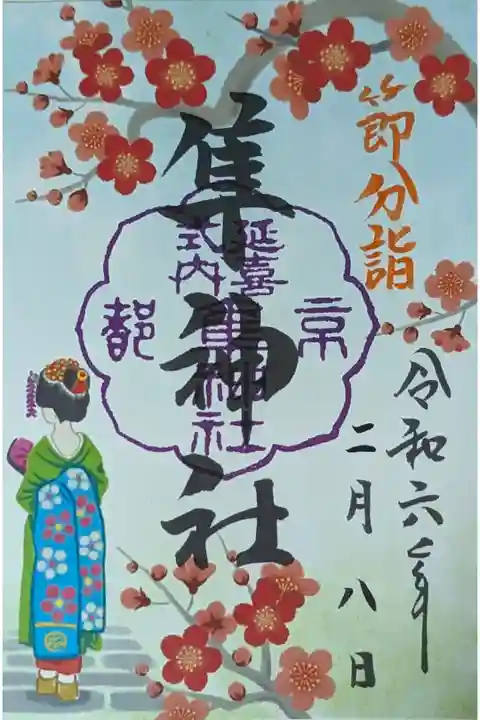 節分詣
令和六年
二月八日
隼神社
延喜
式内
京都
隼神社